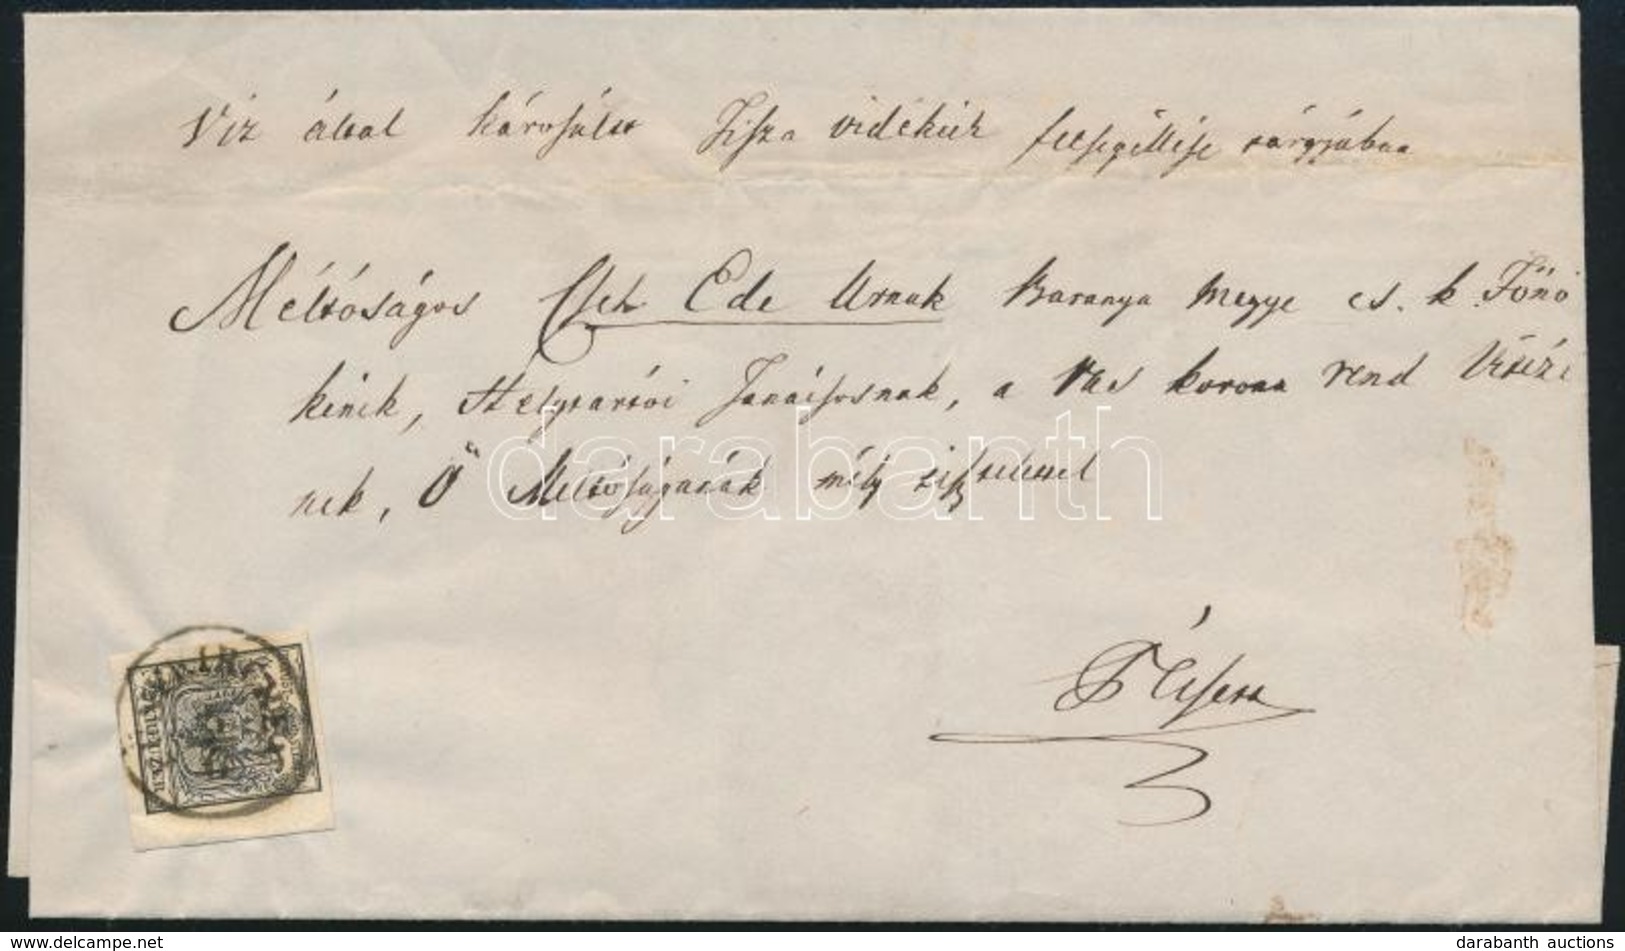 Viz által károsúlt Tisza vidékiek felsegéllése tárgyában
Méltóságos Cseh Ede Urnak Baranya Megye cs. k. Főnö
kének, Helytartói Tanácsosnak, a Vas korona rend Vitézé
nek, Ő Méltóságának mély tisztelettel
darabanth
Pécsett
www.delcampe.net
darabanth auctions